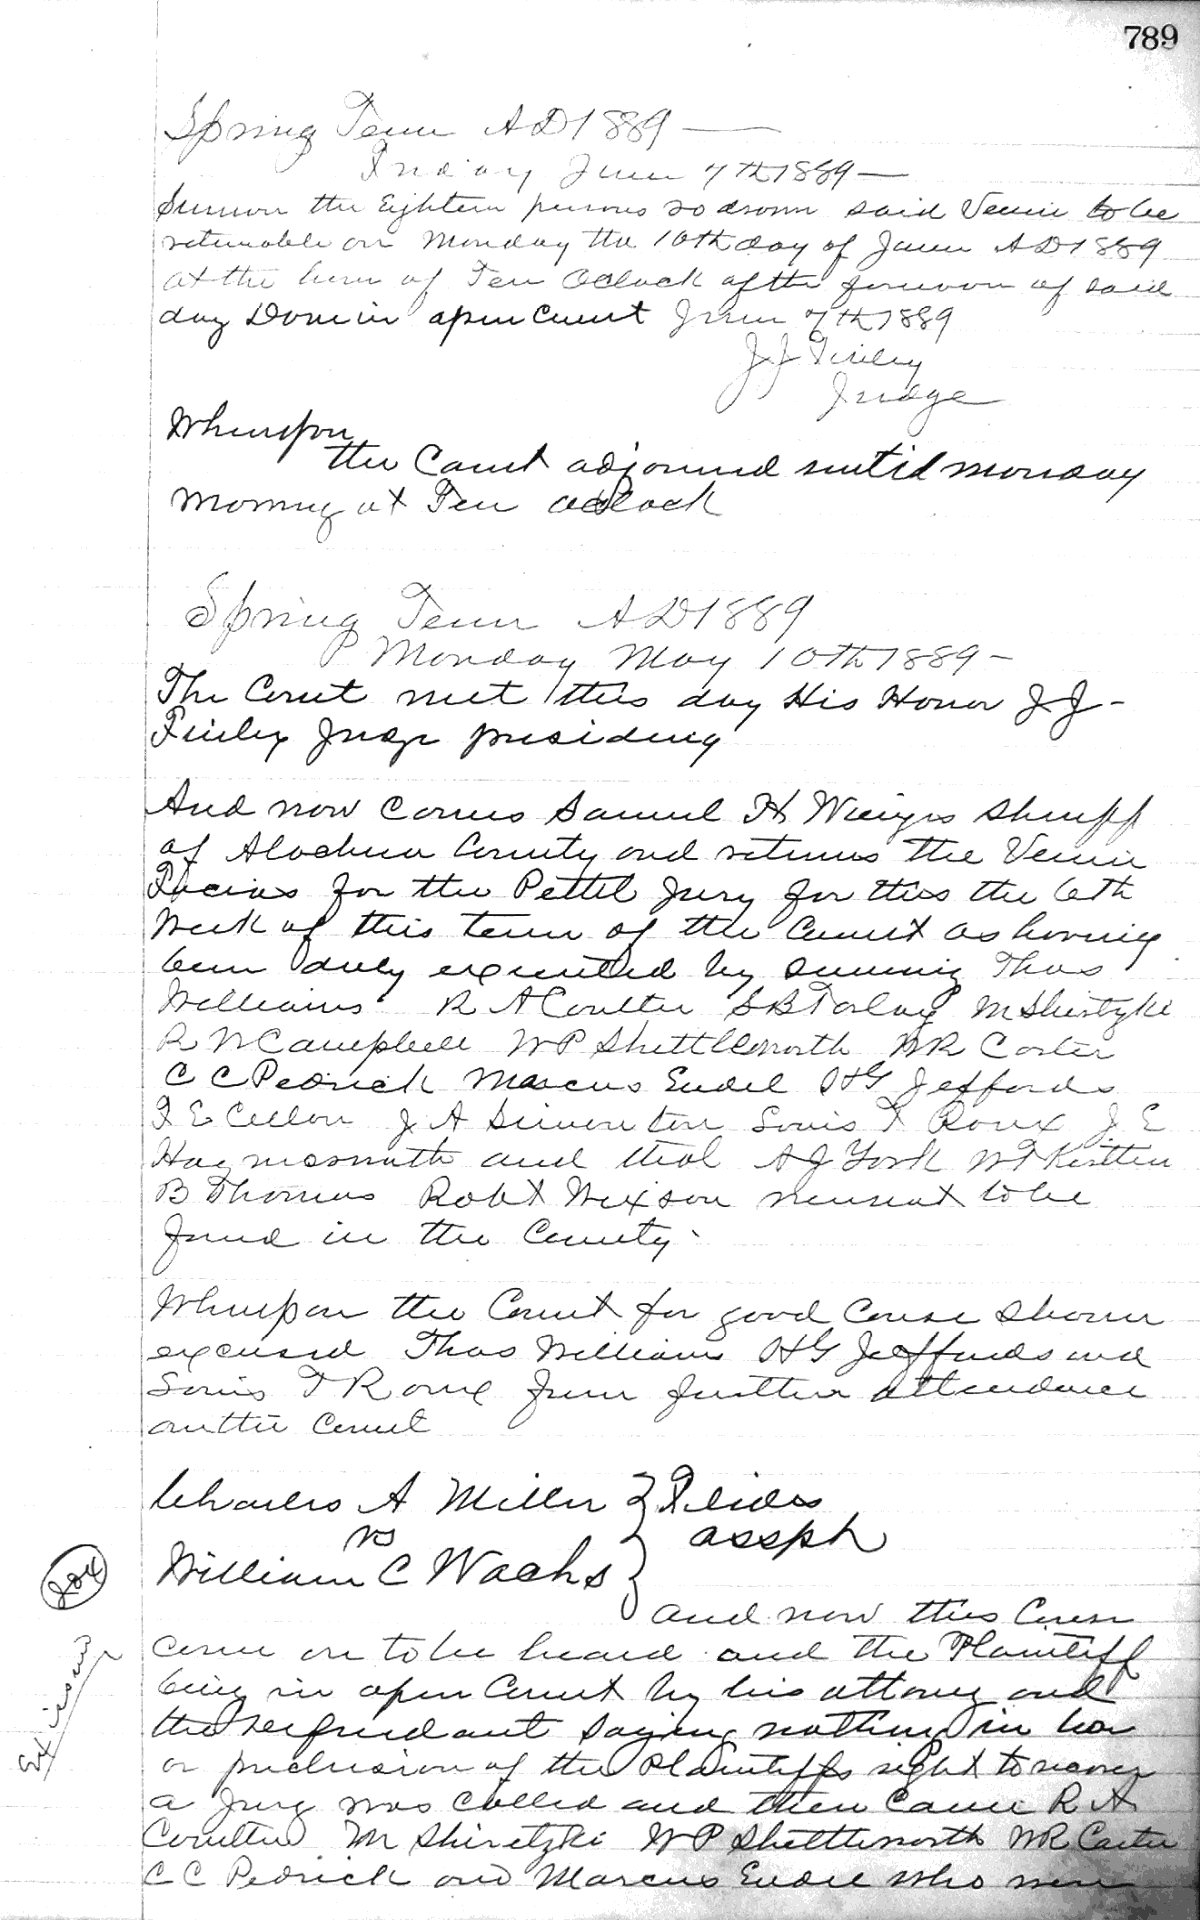 789
Spring Term AD 1889 —
Friday June 7th 1889 —
Summon the Eighteen persons so drawn said Venire to be
returnable on Monday the 10th day of June AD 1889
at the hour of Ten Oclock of the forenoon of said
day Done in open Court June 7th 1889
J J Finley
Judge
Whereupon
the Court adjourned until Monday
Morning at Ten Oclock
Spring Term AD 1889
Monday May 10th 1889 —
The Court met this day His Honor J J -
Finley Judge presiding
And now comes Samuel H Wienges Sheriff
of Alachua County and returns the Venire
Facias for the Pettit Jury for this the 6th
Week of this term of the Court as having
been duly executed by summing Thos
Williams R A Coulter S B Torlay M Shiretzki
R N Campbell W P Shettleworth W R Carter
C C Pedrick Marcus Endel H G Jeffords
F E Cullon J A Simonton Louis F Roux J E
Haymosmith and that A J York W F
B Thomas Robt Wixson were not to be
found in the County -
Whereupon the Court for good Cause shown
excused Thos Williams H G Jeffords and
Louis F Roux from further attendance
on the Court
Charles A Miller
vs
assph
William C Wachs
and now this Cause
came on to be heard and the Plaintiff
being in open Court by his attorney and
the defendant saying nothing in bar
or preclusion of the Plaintiffs right to recover
a Jury was called and then came R A
Coulter M Shiretzki W P Shettleworth W R Carter
C C Pedrick and Marcus Endel who were